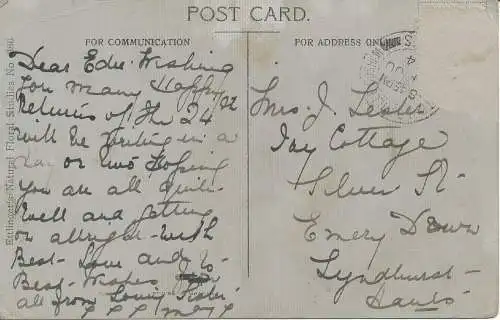 POST CARD.
FOR COMMUNICATION
FOR ADDRESS ONLY
Dear Edie Wishing
you many Happy
Returns of the 24
will be writing in a
day or two Hoping
you are all quite
well and getting
on allright with
Best Love and
Best Wishes
all from Loving Sister
x x x
Mrs. J. Lester
Ivy Cottage
Silver St
Emery Down
Lyndhurst
Hants
Ettlinger's Natural Floral Studies. No.